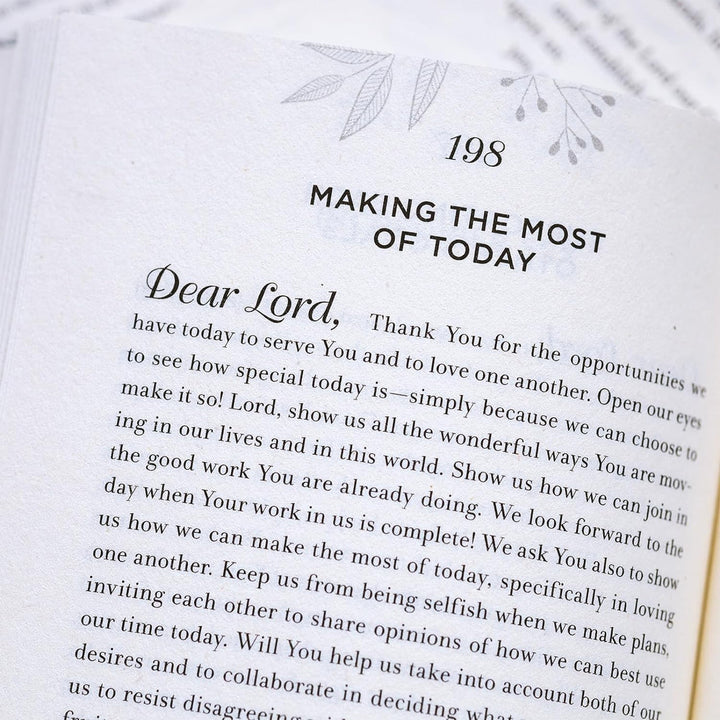 198
MAKING THE MOST
OF TODAY
Dear Lord, Thank You for the opportunities we
have today to serve You and to love one another. Open our eyes
to see how special today is—simply because we can choose to
make it so! Lord, show us all the wonderful ways You are mov-
ing in our lives and in this world. Show us how we can join in
the good work You are already doing. We look forward to the
day when Your work in us is complete! We ask You also to show
us how we can make the most of today, specifically in loving
one another. Keep us from being selfish when we make plans,
inviting each other to share opinions of how we can best use
our time today. Will You help us take into account both of our
desires and to collaborate in deciding what
us to resist disagreeing
of the Lord